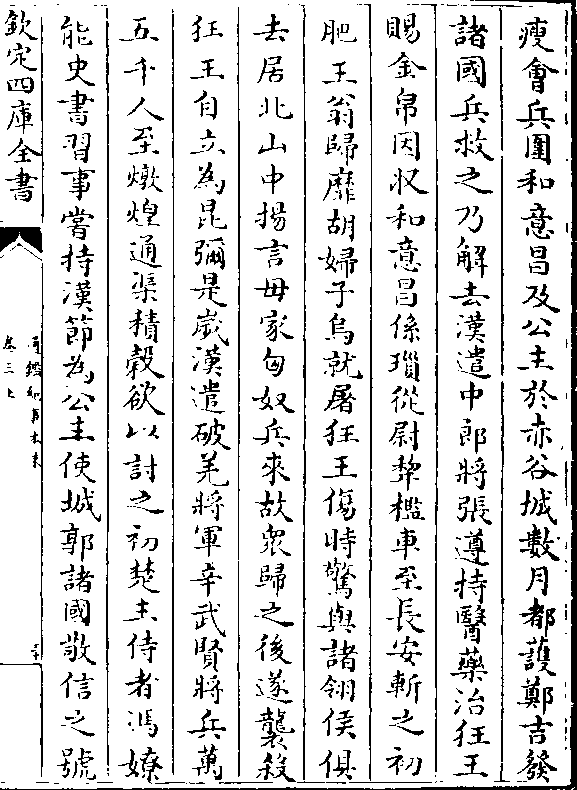 瘦會兵圍和意昌及公主於赤谷城數月都護鄭吉發
諸國兵救之乃解去漢遣中郎將張遵持醫藥治狂王
賜金帛因収和意昌係瑣從尉犂檻車至長安斬之初
肥王翁歸靡胡婦子烏就屠狂王傷時驚與諸翎侯俱
去居北山中揚言毋家匈奴兵來故衆歸之後遂襲殺
狂王自立為昆彌是嵗漢遣破羌將軍辛武賢將兵萬
五千人至燉煌通渠積榖欲以討之初楚主侍者馮嫽
能史書習事嘗持漢節為公主使城郭諸國敬信之號
欽定四庫全書
通鑑紀事本末
卷三上